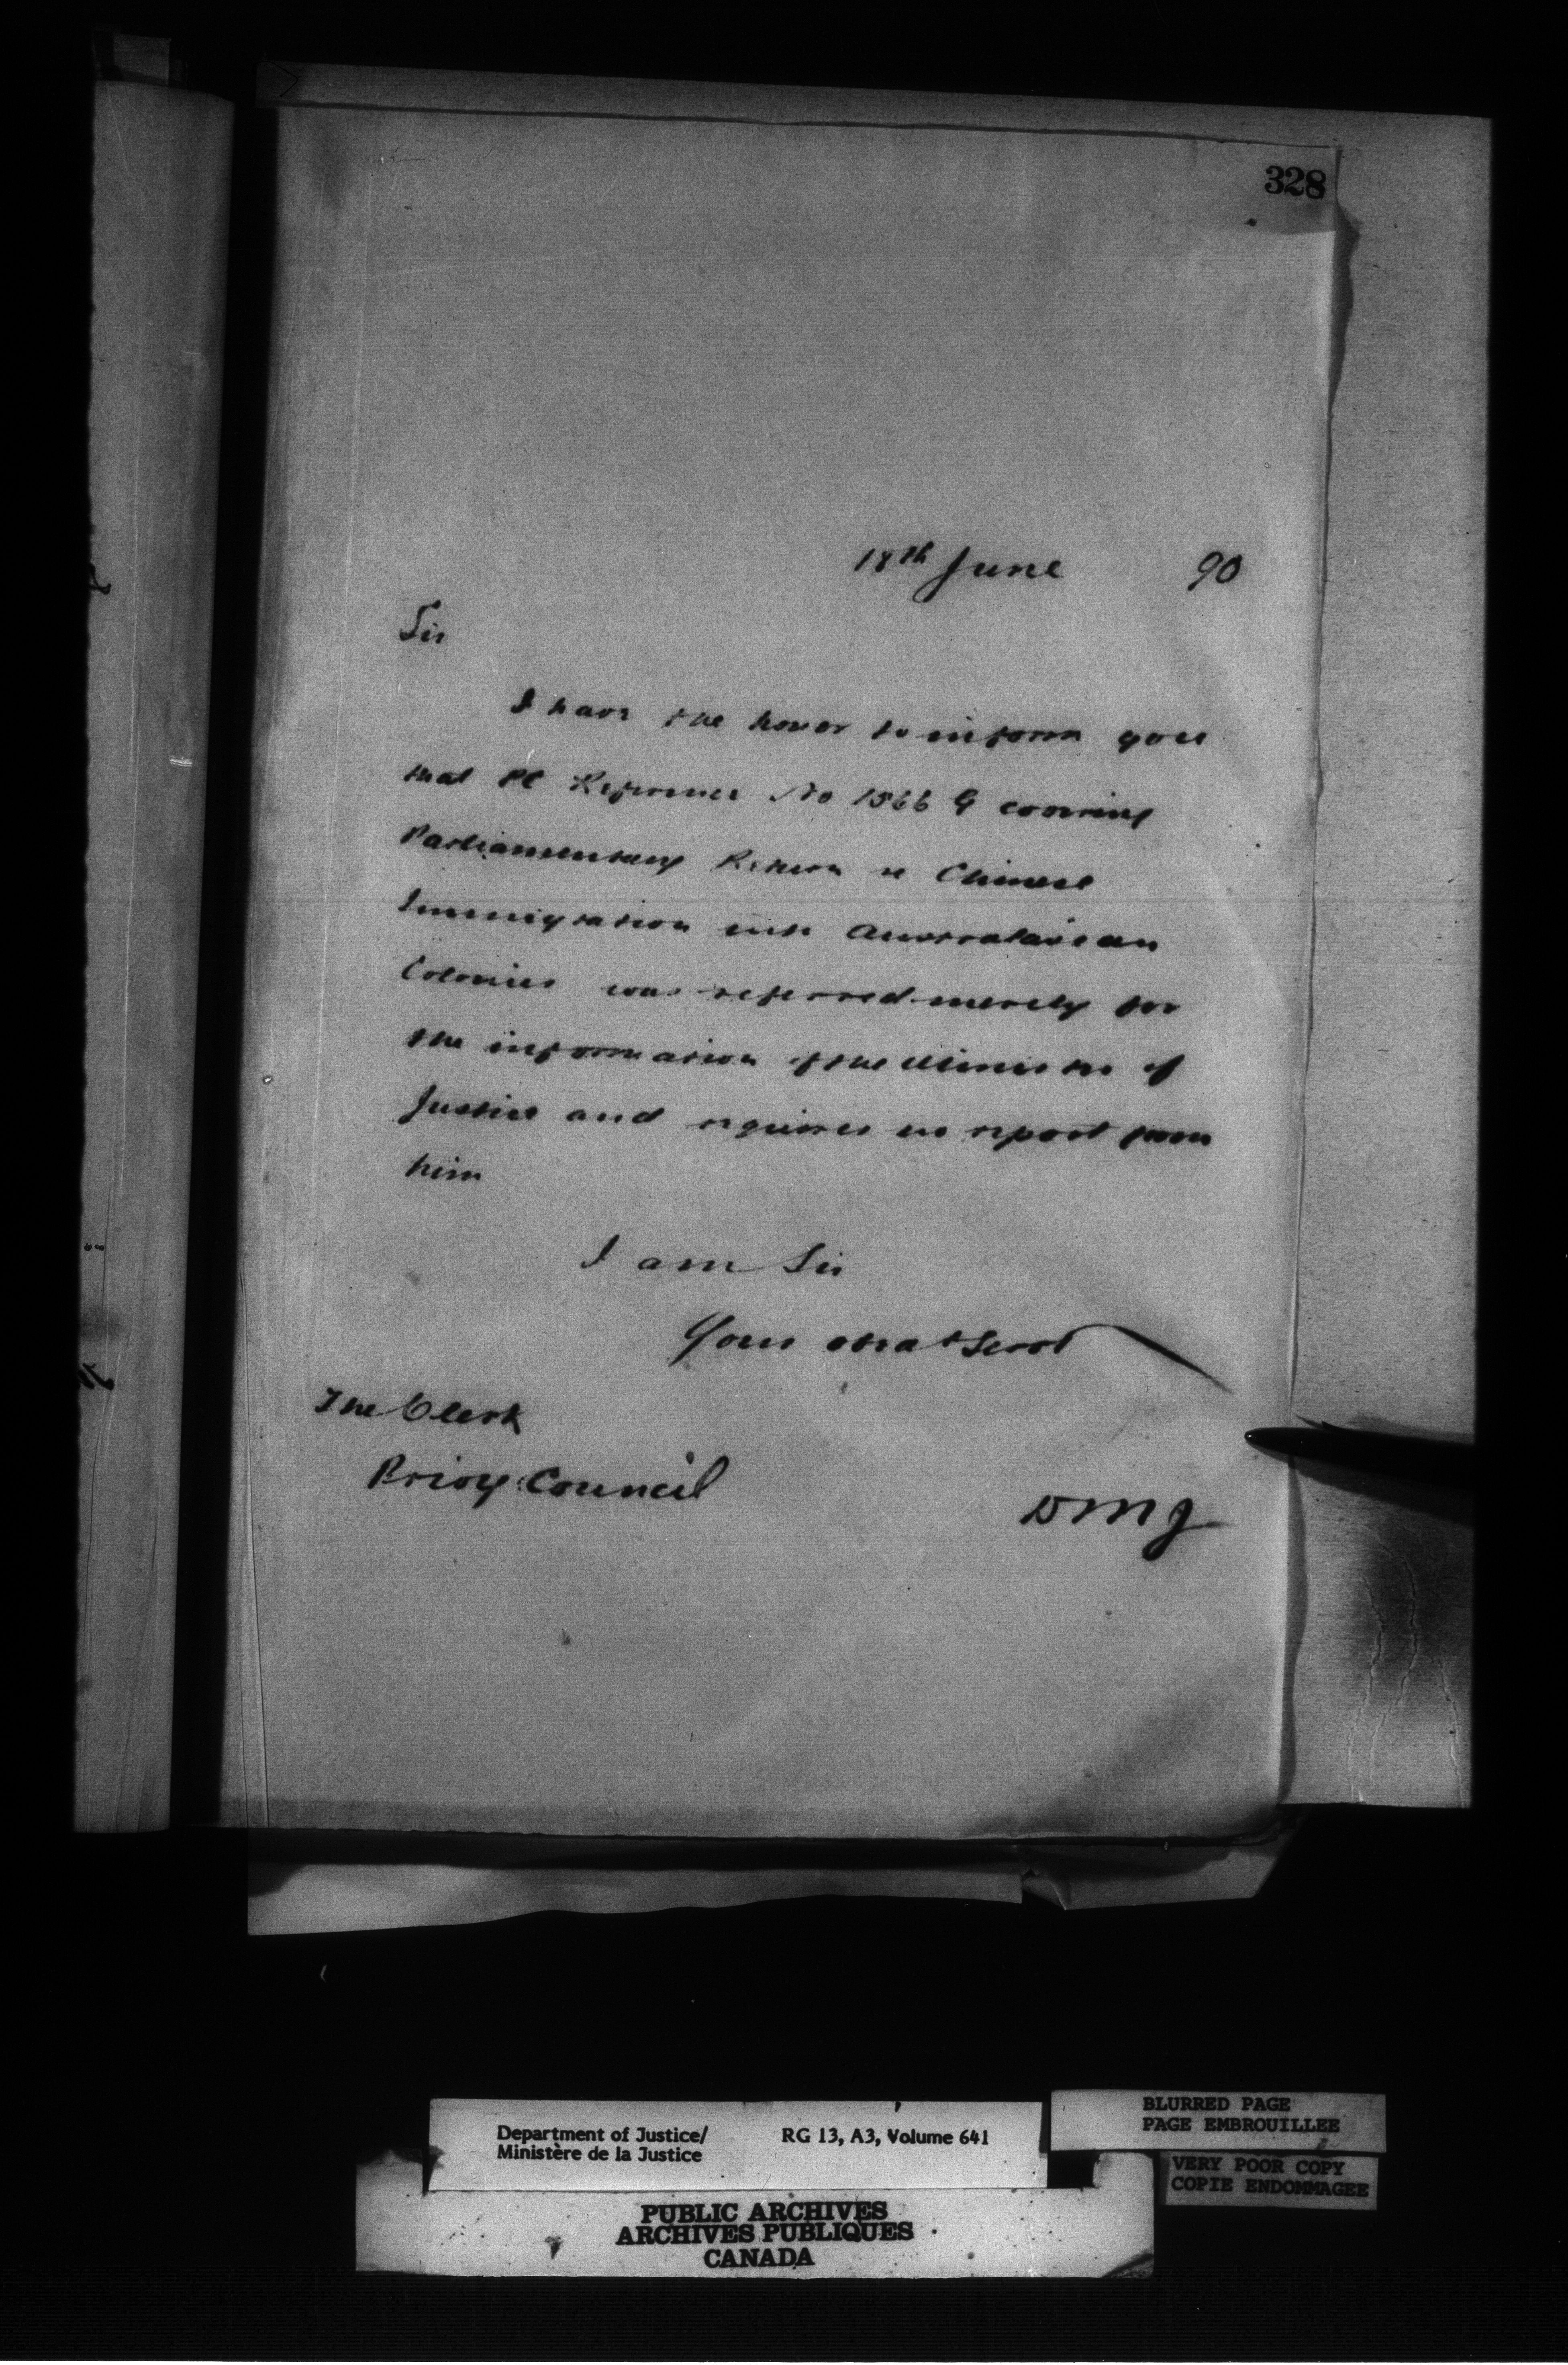 328
18th June 90
Sir
I have the honor to inform you
that PC Reference No 1566 G covering
Parliamentary Return re Chinese
Immigration into Australasian
Colonies was referred merely for
the information of the Minister of
Justice and requires no report from
him
I am Sir
Your obedt Servt
The Clerk
Privy Council
DMJ
Department of Justice/ RG 13, A3, Volume 641
Ministère de la Justice
BLURRED PAGE
PAGE EMBROUILLEE
VERY POOR COPY
COPIE ENDOMMAGEE
PUBLIC ARCHIVES
ARCHIVES PUBLIQUES
CANADA